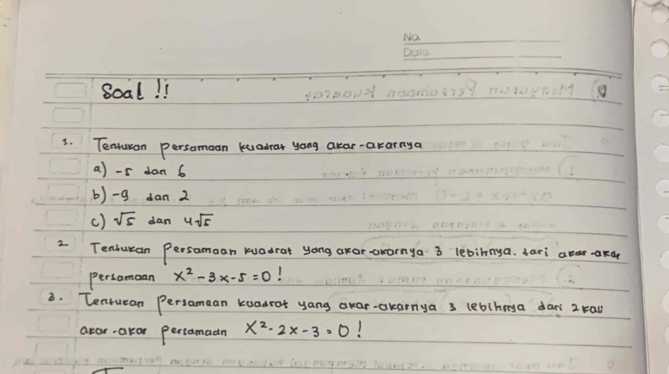 No
Date
Soal !!
1. Tentukan persamaan kuadrat yang akar-akarnya
a) -5 dan 6
b) -9 dan 2
c) √5 dan 4√5
2 Tentukan persamaan kuadrat yang akar-akarnya 3 lebihnya. dari akar-akar
persamaan x² - 3x - 5 = 0 !
3. Tentukan persamaan kuadrat yang akar-akarnya 3 lebihnya dari 2 kali
akar-akar persamaan x² - 2x - 3 = 0 !